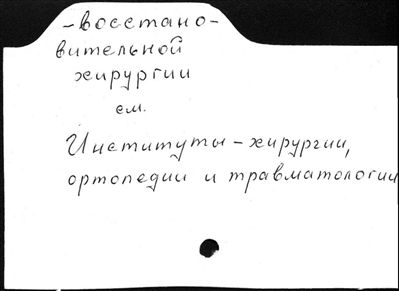 -восстано-
вительной
хирургии
см.
Институты - хирургии,
ортопедии и травматологии